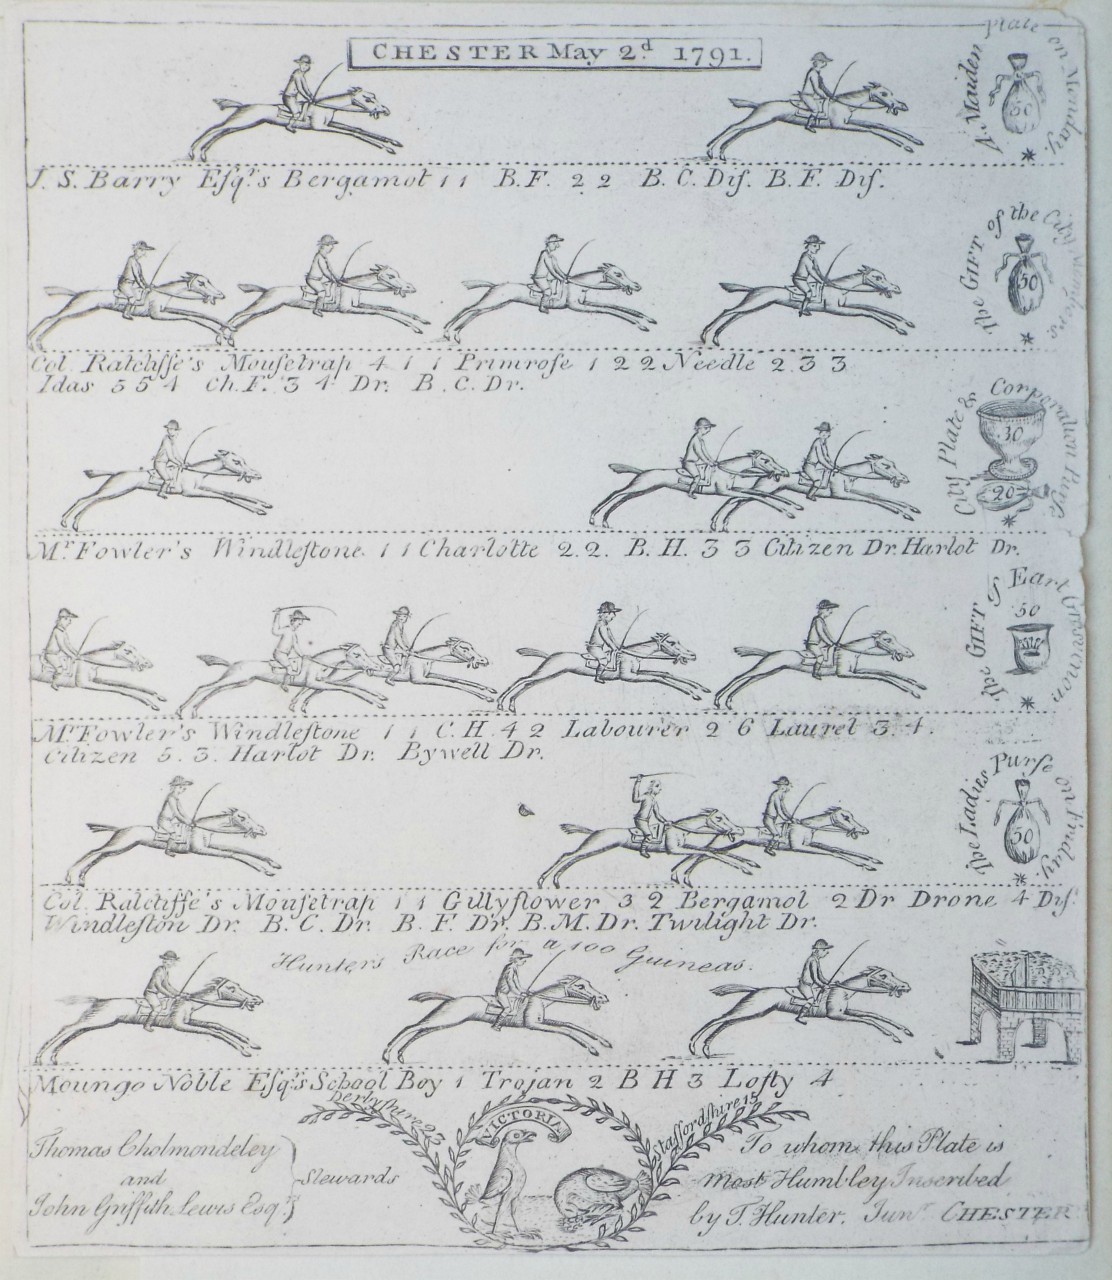 CHESTER May 2d 1791.
A Maiden Plate on Monday.
50
J. S. Barry Eſqr.s Bergamot 1 1 B.F. 2 2 B.C. Diſ. B.F. Diſ.
The GIFT of the City Members
50
Col. Ratcliffe's Mouſetrap 4 1 1 Primroſe 1 2 2 Needle 2 3 3
Idas 5 5 4 Ch.F. 3 4 Dr. B.C. Dr.
City Plate & Corporation Purſe
30
20
Mr. Fowler's Windleſtone 1 1 Charlotte 2 2. B.H. 3 3 Citizen Dr. Harlot Dr.
The GIFT of Earl Grosvenor
50
Mr. Fowler's Windleſtone 1 1 C.H. 4 2 Labourer 2 6 Laurel 3. 4.
Citizen 5. 3. Harlot Dr. Bywell Dr.
The Ladies Purſe on Friday
50
Col. Ratcliffe's Mouſetrap 1 1 Gillyflower 3 2 Bergamot 2 Dr Drone 4 Diſ.
Windleſton Dr. B.C. Dr. B.F. Dr. B.M. Dr. Twilight Dr.
Hunters Race for a 100 Guineas.
Moungo Noble Eſqr.s School Boy 1 Trojan 2 B H 3 Lofty 4
Derbyshire 23
VICTORIA
Staffordshire 15
Thomas Cholmondeley
and
John Griffith Lewis Esqrs
Stewards
To whom this Plate is
most Humbley Inscribed
by T. Hunter. Junr. CHESTER